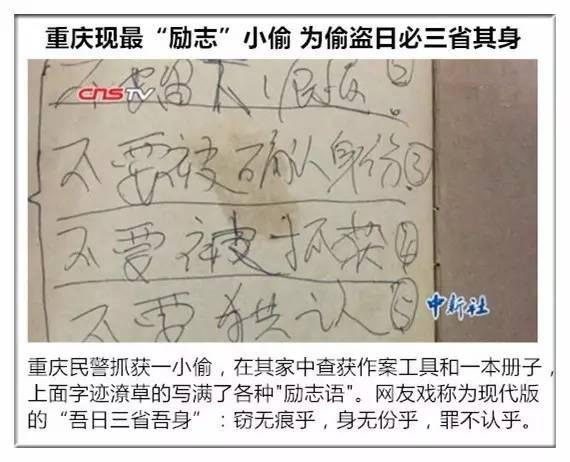 重庆现最“励志”小偷 为偷盗日必三省其身
CNSTV
不要留下
②
不要被确认身份③
不要被抓获④
不要供认⑤
中新社
重庆民警抓获一小偷，在其家中查获作案工具和一本册子，
上面字迹潦草的写满了各种"励志语"。网友戏称为现代版
的“吾日三省吾身”：窃无痕乎，身无份乎，罪不认乎。